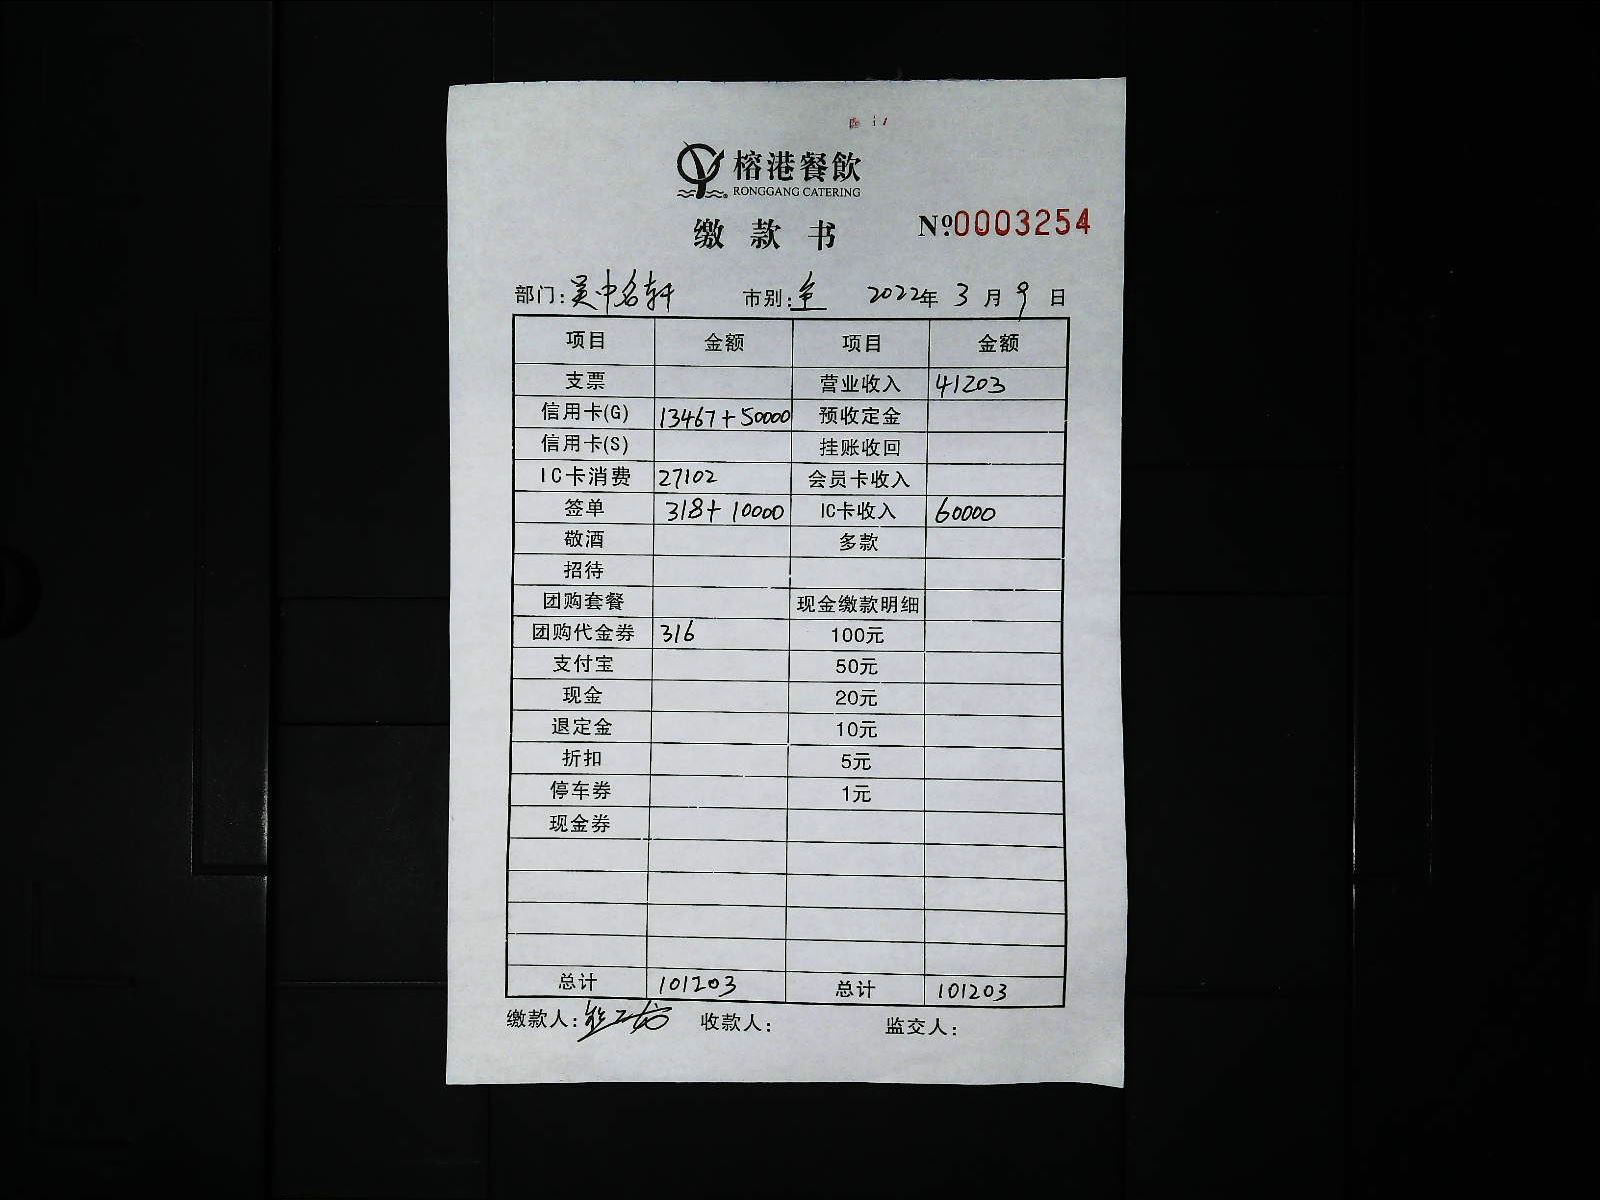 榕港餐飲
RONGGANG CATERING
缴款书 №0003254
部门: 吴中名轩 市别: 全 2022年 3 月 9 日
项目 金额 项目 金额
支票 营业收入 41203
信用卡(G) 13467+50000 预收定金
信用卡(S) 挂账收回
IC卡消费 27102 会员卡收入
签单 318+10000 IC卡收入 60000
敬酒 多款
招待
团购套餐 现金缴款明细
团购代金券 316 100元
支付宝 50元
现金 20元
退定金 10元
折扣 5元
停车券 1元
现金券
总计 101203 总计 101203
缴款人: 收款人: 监交人: